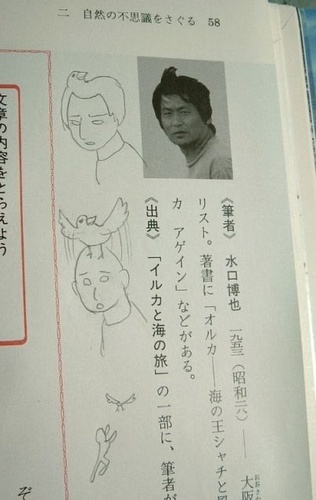 二 自然の不思議をさぐる 58
《筆者》 水口博也 一九五三(昭和二八)―― 大阪
リスト。著書に「オルカ――海の王シャチと
カ アゲイン」などがある。
《出典》 「イルカと海の旅」の一部に、筆者が
ぞ
文章の内容をとらえよう